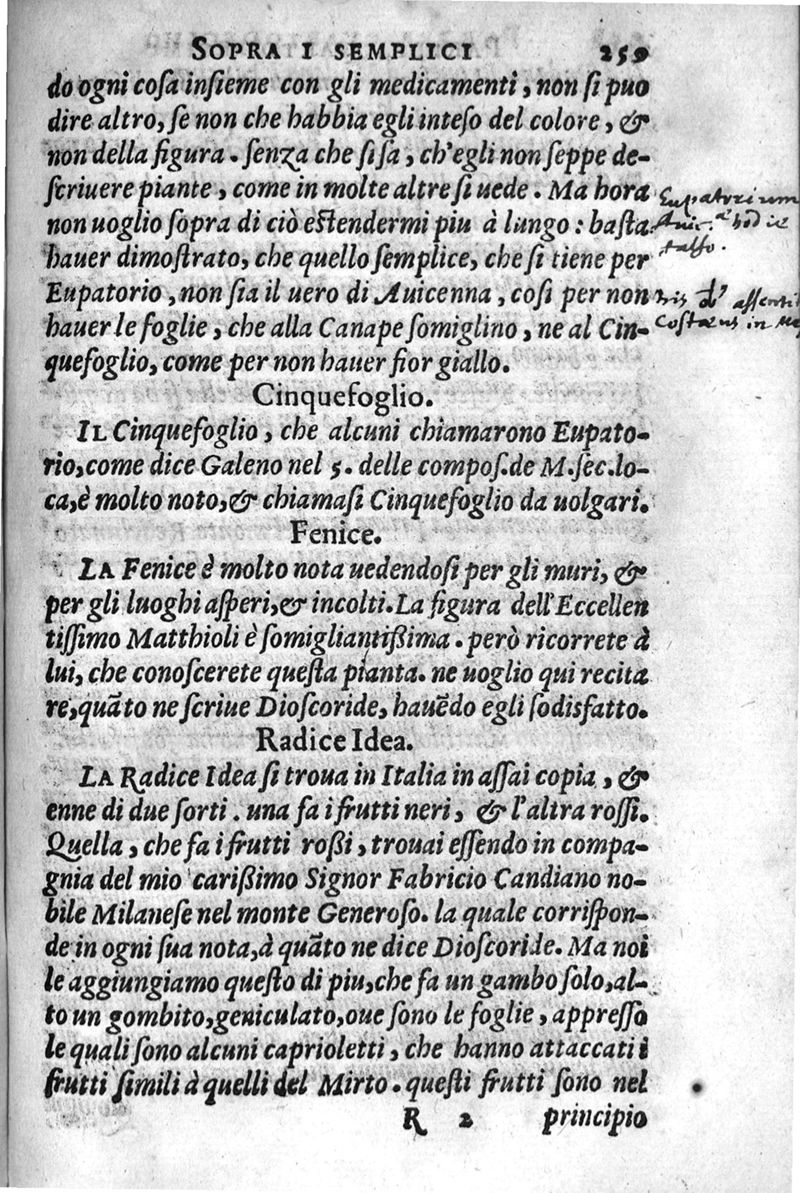 SOPRA I SEMPLICI 259
do ogni coſa inſieme con gli medicamenti, non ſi puo
dire altro, ſe non che habbia egli inteſo del colore, &
non della figura. ſenza che ſi ſa, ch'egli non ſeppe de-
ſcriuere piante, come in molte altre ſi uede. Ma hora
non uoglio ſopra di ciò eſtendermi piu à lungo: baſta
hauer dimoſtrato, che quello ſemplice, che ſi tiene per
Eupatorio, non ſia il uero di Auicenna, coſi per non
hauer le foglie, che alla Canape ſomiglino, ne al Cin-
quefoglio, come per non hauer fior giallo.
Eupatorium
Auic.
falſo.
Coſtaeus in
Cinquefoglio.
IL Cinquefoglio, che alcuni chiamarono Eupato-
rio, come dice Galeno nel 5. delle compoſ. de M. ſec. lo-
ca, è molto noto, & chiamaſi Cinquefoglio da uolgari.
Fenice.
LA Fenice è molto nota uedendoſi per gli muri, &
per gli luoghi aſperi, & incolti. La figura dell'Eccellen
tiſſimo Matthioli è ſomigliantißima. però ricorrete à
lui, che conoſcerete queſta pianta. ne uoglio qui recita
re, quãto ne ſcriue Dioſcoride, hauẽdo egli ſodisfatto.
Radice Idea.
LA Radice Idea ſi troua in Italia in aſſai copia, &
enne di due ſorti. una fa i frutti neri, & l'altra roſſi.
Quella, che fa i frutti roßi, trouai eſſendo in compa-
gnia del mio carißimo Signor Fabricio Candiano no-
bile Milaneſe nel monte Generoſo. la quale corriſpon-
de in ogni ſua nota, à quãto ne dice Dioſcoride. Ma noi
le aggiungiamo queſto di piu, che fa un gambo ſolo, al-
to un gombito, geniculato, oue ſono le foglie, appreſſo
le quali ſono alcuni caprioletti, che hanno attaccati i
frutti ſimili à quelli del Mirto. queſti frutti ſono nel
R 2 principio